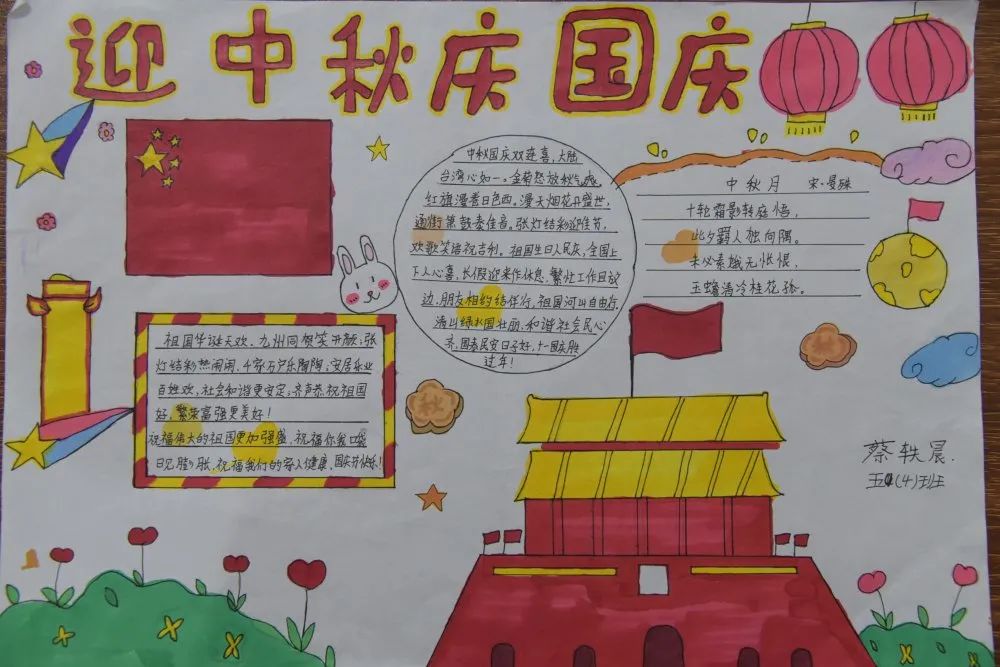 迎中秋庆国庆
中秋国庆双连喜,大陆
台湾心如一。金菊怒放秋气爽,
红旗漫卷日色西。漫天烟花开盛世,
通街集鼓奏佳音。张灯结彩迎佳节,
欢歌笑语祝吉利。祖国生日人民庆,全国上
下人心喜,长假迎来作休息,繁忙工作且放
边,朋友相约结伴行,祖国河山自由存,
清山绿水国壮丽,和谐社会民心
齐,国泰民安日子好,十一国庆胜
过年!
中秋月 宋·晏殊
十轮霜影转庭梧,
此夕羁人独向隅。
未必素娥无怅恨,
玉蟾清冷桂花孤。
祖国华诞天欢,九州同贺笑开颜;张
灯结彩热闹闹,千家万户乐陶陶;安居乐业
百姓欢,社会和谐更安定;齐声恭祝祖国
好,繁荣富强更美好!
祝福伟大的祖国更加强盛,祝福你我口袋
日见膨胀,祝福我们的家人健康,国庆节快乐!
秋
蔡轶晨.
五(4)班